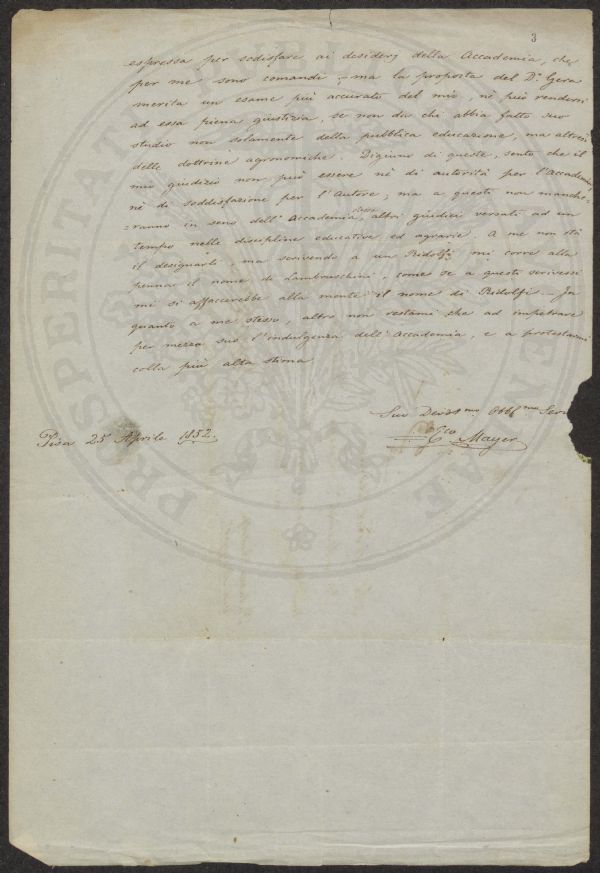 3
espressa per sodisfare ai desiderj della Accademia, che
per me sono comandi; ma la proposta del Dr Gera
merita un esame più accurato del mio, nè può rendersi
ad essa piena giustizia, se non da chi abbia fatto suo
studio non solamente della pubblica educazione, ma altresì
delle dottrine agronomiche. Digiuno di queste, sento che il
mio giudizio non può essere nè di autorità per l'Accademia,
nè di soddisfazione per l'Autore; ma a questi non manche=
=ranno in seno dell'Accademia stessa altri giudici versati ad un
tempo nelle discipline educative ed agrarie. A me non stà
il designarli ma scrivendo a un Ridolfi mi corre alla
penna il nome di Lambruschini, come se a questo scrivessi
mi si affaccerebbe alla mente il nome di Ridolfi. In
quanto a me stesso, altro non restami che ad impetrare
per mezzo suo l'indulgenza dell'Accademia, e a protestarmi
colla più alta stima
Suo Devmo Obbmo Serv
Pisa 25 Aprile 1852.
Eco Mayer
PROSPERITATI